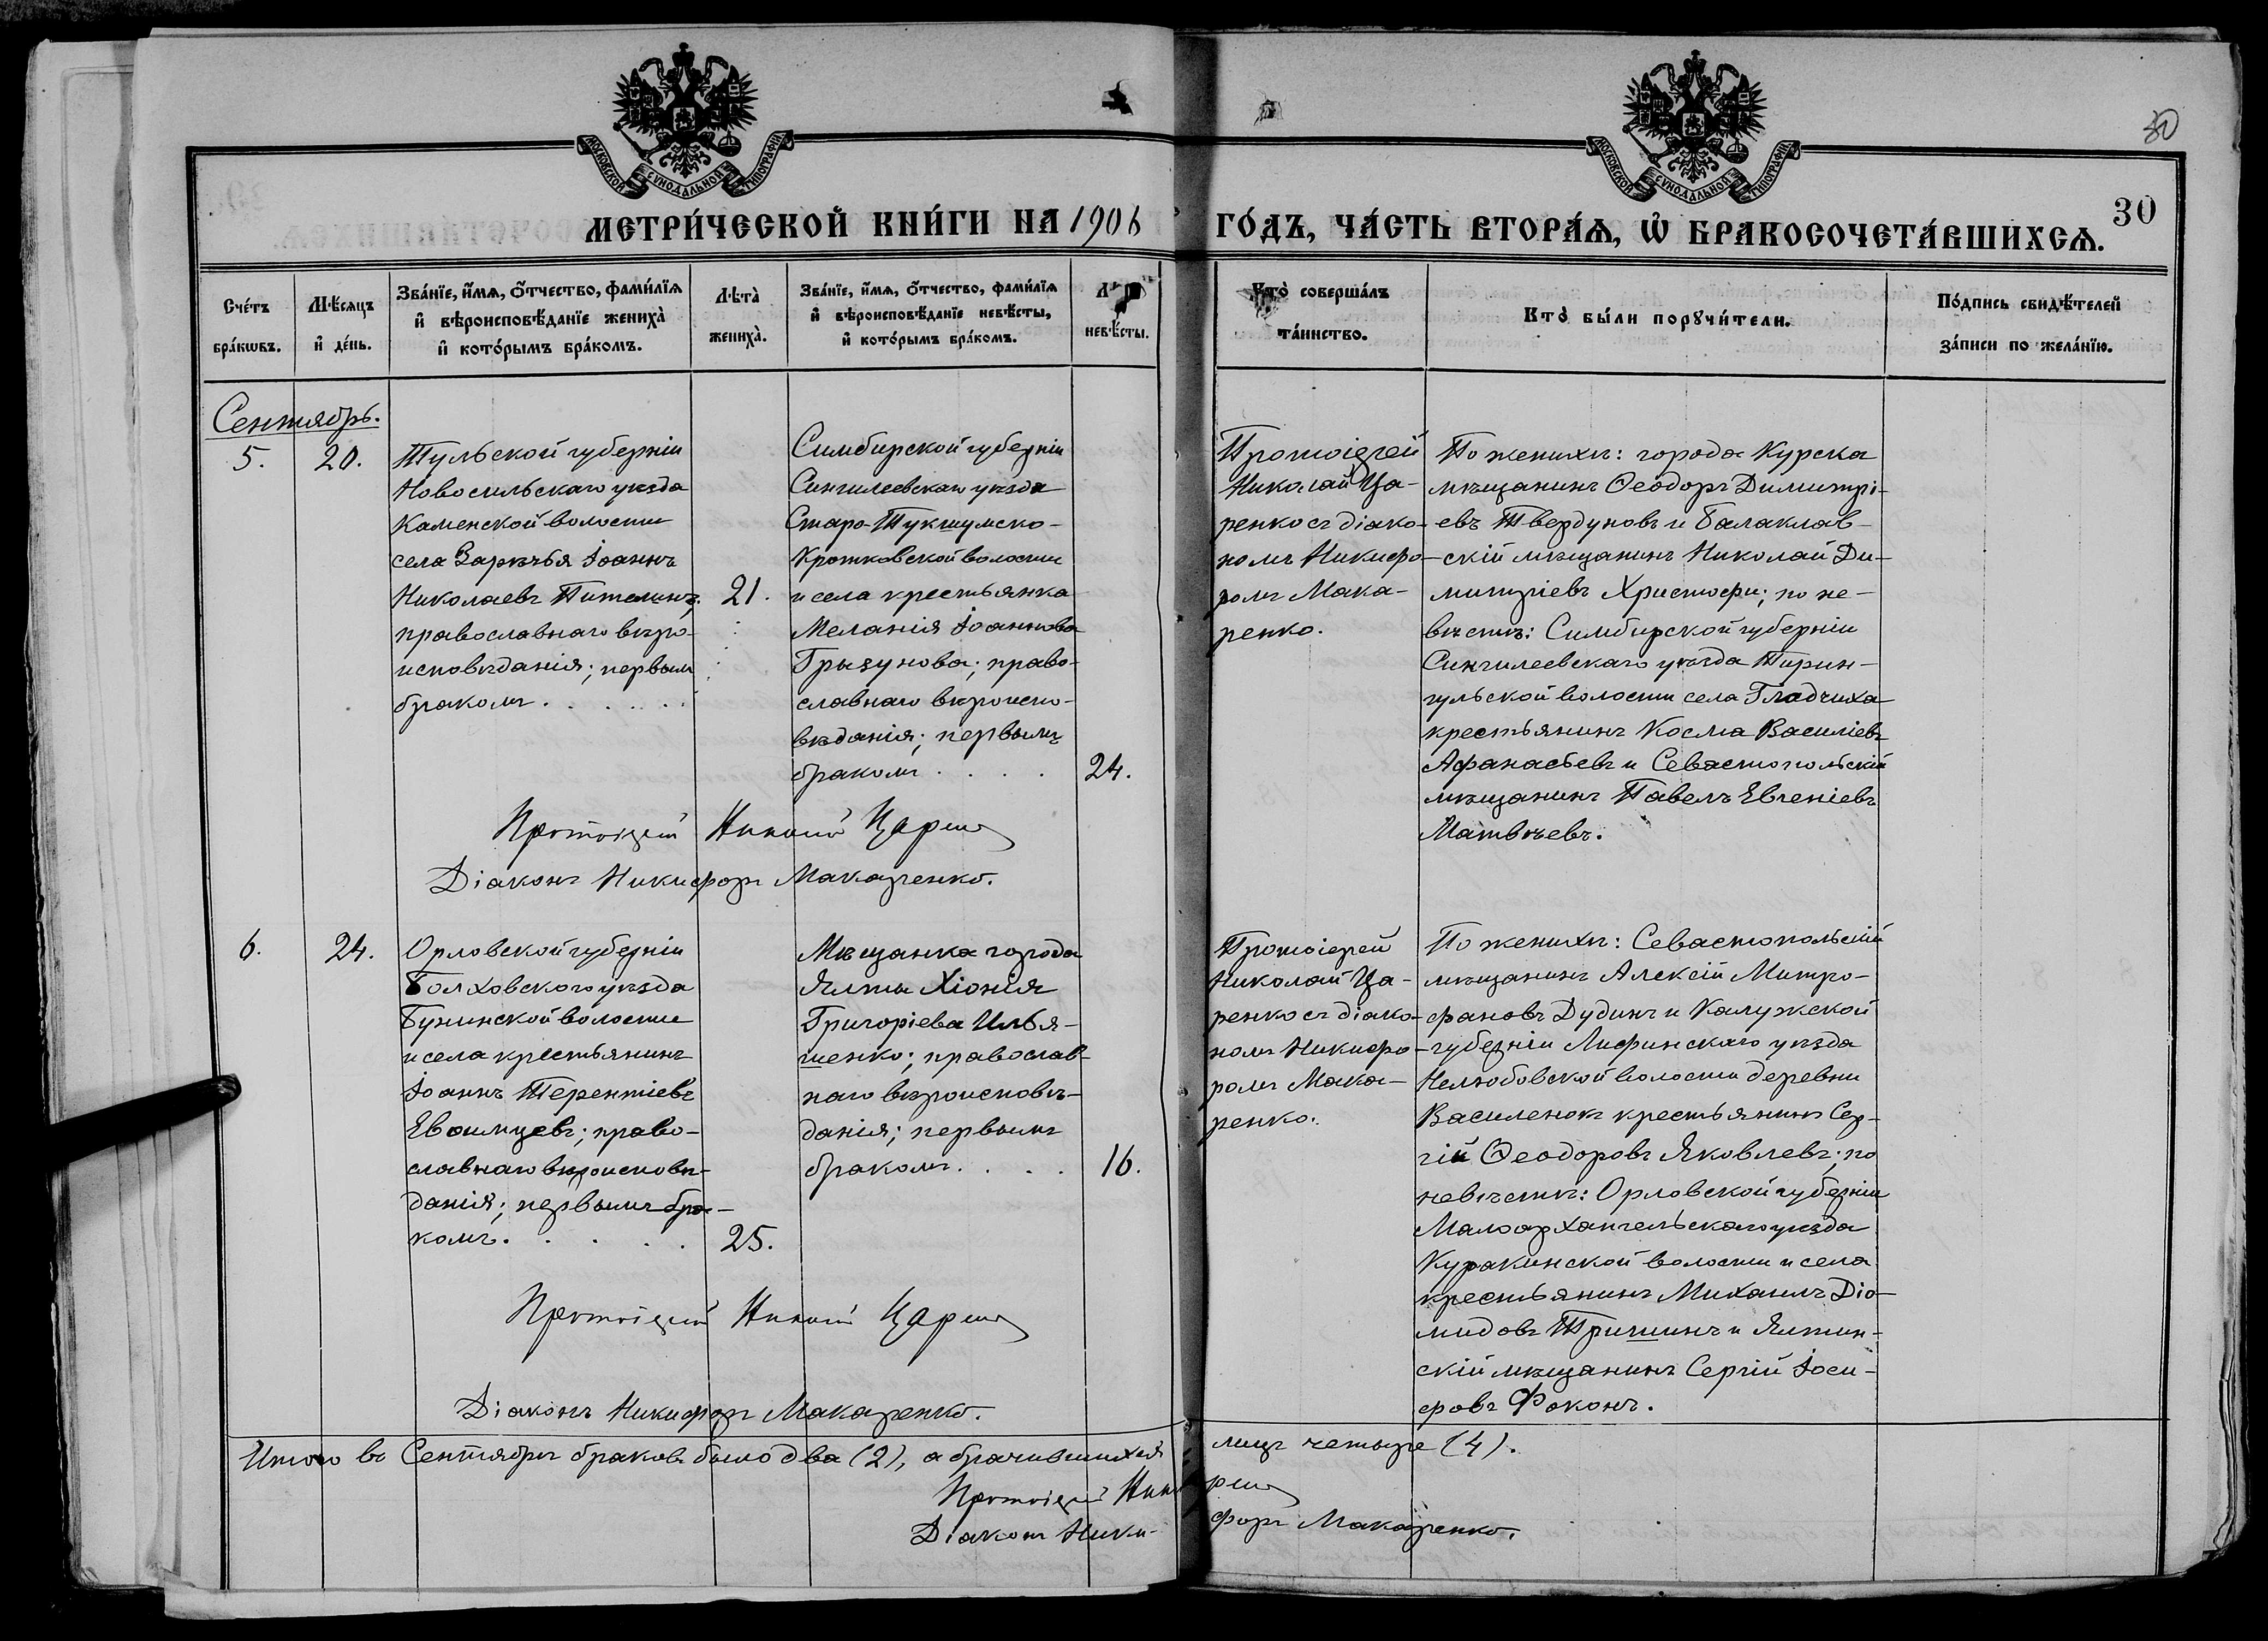 МОСКОВСКОЙ СѴНОДАЛЬНОЙ ТИПОГРАФІИ
МОСКОВСКОЙ СѴНОДАЛЬНОЙ ТИПОГРАФІИ
30
30
МЕТРИ́ЧЕСКОЙ КНИ́ГИ НА 1906 ГО́ДЪ, ЧА́СТЬ ВТОРА́Ѧ, Ѡ БРАКОСОЧЕТА́ВШИХСѦ.
Сче́тъ бра́кѡвъ.
Мѣ́сяцъ и де́нь.
Зва́нїе, и́мѧ, о́тчество, фами́лїѧ и вѣроисповѣ́данїе жениха̀ и кото́рымъ бра́комъ.
Лѣта̀ жениха̀.
Зва́нїе, и́мѧ, о́тчество, фами́лїѧ и вѣроисповѣ́данїе невѣ́сты, и кото́рымъ бра́комъ.
невѣ́сты.
Кто̀ соверша́лъ та́инство.
Кто̀ бы́ли порꙋчи́тели.
По́дпись свидѣ́телей за́писи по жела́нїю.
Сентябрь.
5.
20.
Тульской губерніи
Новосильскаго уѣзда
Каменской волости
села Зарѣчья Іоаннъ
Николаевъ Пителинъ;
православнаго вѣро-
исповѣданія; первымъ
бракомъ . . . . . .
21.
Симбирской губерніи
Сингилеевскаго уѣзда
Старо-Тукшумско-
Кротковской волости
и села крестьянка
Меланія Іоаннова
Грызунова; право-
славнаго вѣроиспо-
вѣданія; первымъ
бракомъ . . . .
24.
Протоіерей
Николай Ца-
ренко съ діако-
номъ Никифо-
ромъ Мака-
ренко.
По женихѣ: города Курска
мѣщанинъ Ѳеодоръ Димитрі-
евъ Твердуновъ и Балаклав-
скій мѣщанинъ Николай Ди-
митріевъ Христофи; по не-
вѣстѣ: Симбирской губерніи
Сингилеевскаго уѣзда Тирен-
гульской волости села Гладчиха
крестьянинъ Косма Василіевъ
Афанасьевъ и Севастопольскій
мѣщанинъ Павелъ Евгеніевъ
Матвѣевъ.
Протоіерей Николай Царенко
Діаконъ Никифоръ Макаренко.
6.
24.
Орловской губерніи
Болховского уѣзда
Бунинской волости
и села крестьянинъ
Іоаннъ Терентіевъ
Евсимцевъ; право-
славнаго вѣроисповѣ-
данія; первымъ бра-
комъ . . . . .
25.
Мѣщанка города
Ялты Хіонія
Григоріева Илья-
шенко; православ-
наго вѣроисповѣ-
данія; первымъ
бракомъ . . . .
16.
Протоіерей
Николай Ца-
ренко съ діако-
номъ Никифо-
ромъ Мака-
ренко.
По женихѣ: Севастопольскій
мѣщанинъ Алексій Митро-
фановъ Дудинъ и Калужской
губерніи Лифинскаго уѣзда
Нелюбовской волости деревни
Василенок крестьянинъ Сер-
гій Ѳеодоровъ Яковлевъ; по
невѣстѣ: Орловской губерніи
Малоархангельскаго уѣзда
Куракинской волости и села
крестьянинъ Михаилъ Діо-
мидовъ Тришинъ и Ялтин-
скій мѣщанинъ Сергій Іоси-
фовъ Фоконъ.
Протоіерей Николай Царенко
Діаконъ Никифоръ Макаренко.
Итого въ Сентябрѣ браковъ было два (2), а брачившихся лицъ четыре (4).
Діаконъ Ники-форъ Макаренко.